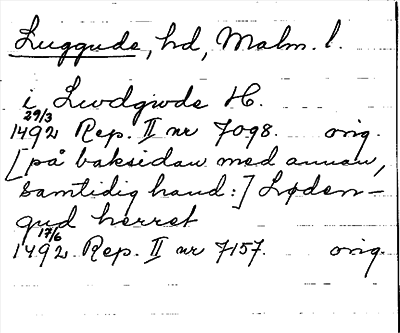 Luggude, hd, Malm. l.
i Lwdgwde H.
29/3
1492 Rep. II nr 7098. orig.
[på baksidan med annan,
samtidig hand:] Løden-
gud herret
17/6
1492. Rep. II nr 7157. orig.